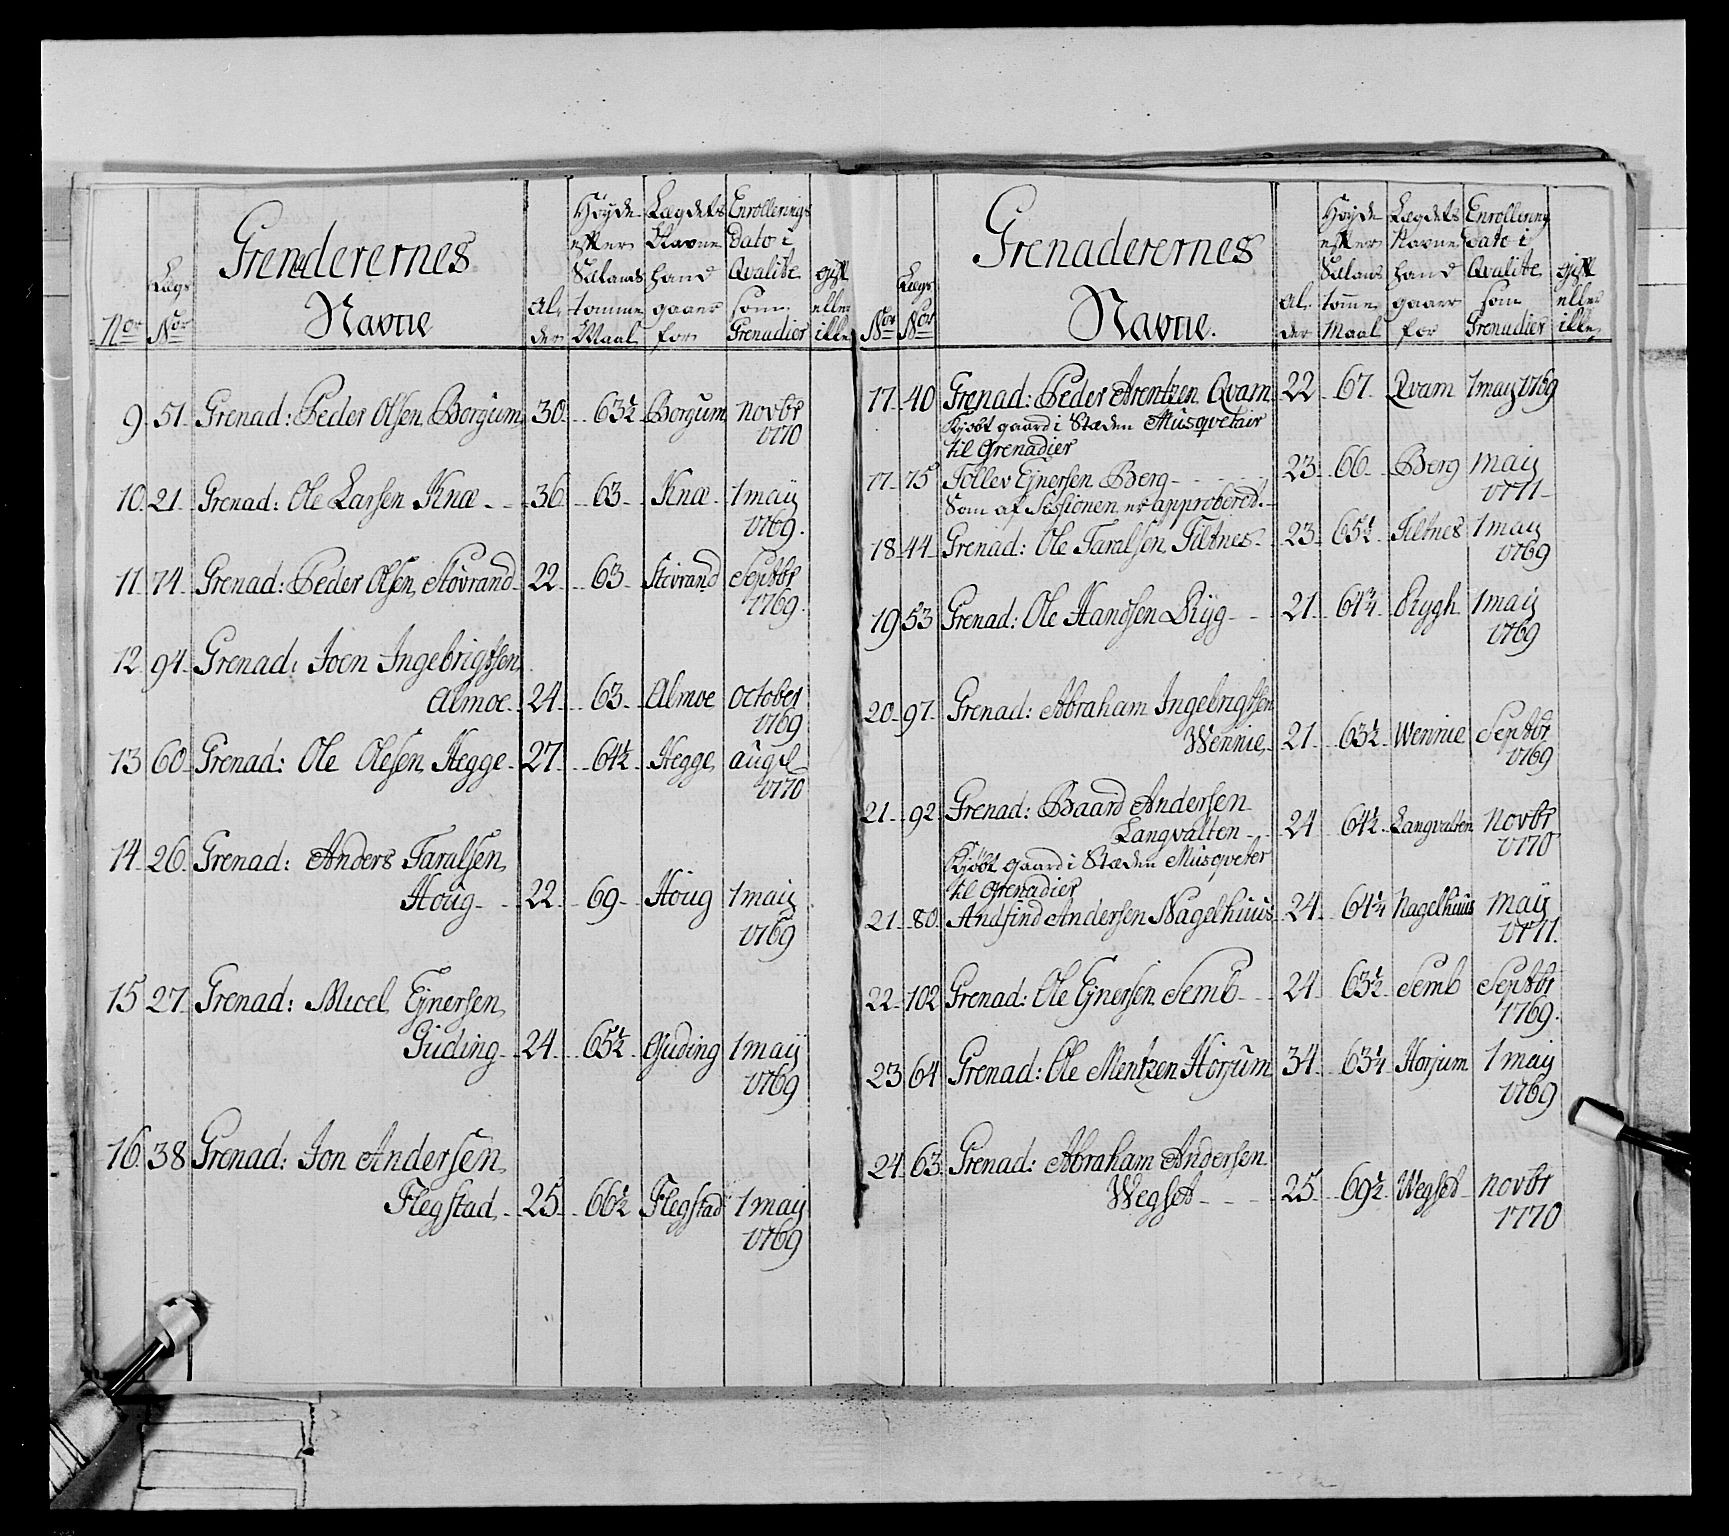 Nor
Lægs Nor
Grenaderernes
Navne
Alder
Høyde efter Sælands tomme Maal
Lægdets Navne hand gaaer for
Enrollerings Dato i Qvalite som Grenadier
gift eller ikke
9. 51. Grenad: Peder Olsen Borgum 30. 63½ Borgum novbr
1770
10. 21. Grenad: Ole Larsen Knæ 36. 63. Knæ 1 maij
1769.
11. 74. Grenad: Peder Olsen Støvrand 22. 63. Støvrand Septbr
1769.
12. 94. Grenad: Joen Ingebrigtsen
Almoe 24. 63. Almoe October
1769
13. 60. Grenad: Ole Olesen Hegge 27. 64½ Hegge aug
1770
14. 26. Grenad: Anders Taralsen
Houg 22. 69. Houg 1 maij
1769
15. 27. Grenad: Micel Ejnersen
Guding 24. 65½ Guding 1 maij
1769
16. 38 Grenad: Jon Andersen
Flegstad 25. 66½ Flegstad 1 maij
1769
Nor
Lægs Nor
Grenaderernes
Navne.
Alder
Høyde efter Sælans tomme Maal
Lægdets Navne hand gaaer for
Enrollering dato i Qvalite som Grenadier
gift eller ikke
17. 40 Grenad: Peder Arentzen Qvam 22 67. Qvam 1 maij 1769
Kjøbt gaard i Stæden Musqvetair
til Grenadier
17. 75 Tollev Ejnersen Berg 23. 66. Berg maij
1771
Som af Sessionen er approbered.
18. 44. Grenad: Ole Taralsen Tiltnes 23. 65½ Tiltnes 1 maij
1769
19 53 Grenad: Ole Handsen Ryg 21. 64¾ Rygh 1 maij
1769
20. 97. Grenad: Abraham Ingebrigtsen
Wennie 21. 63½ Wennie Septbr
1769
21. 92. Grenad: Baard Andersen
Langvalten 24 64½ Langvalten Novbr
1770
Kjøbt gaard i Stæden Musqveter
til Grenadier
21. 80. Andfind Andersen Nagelhuus 24. 64¼ Nagelhuus Maij
1771.
22. 102 Grenad: Ole Ejnersen Semb 24. 63½ Semb Septbr
1769.
23 64 Grenad: Ole Mentzen Horjum 34. 63¼ Horjum 1 maij
1769
24. 63. Grenad: Abraham Andersen
Wegset 25. 69½ Wegset novbr
1770